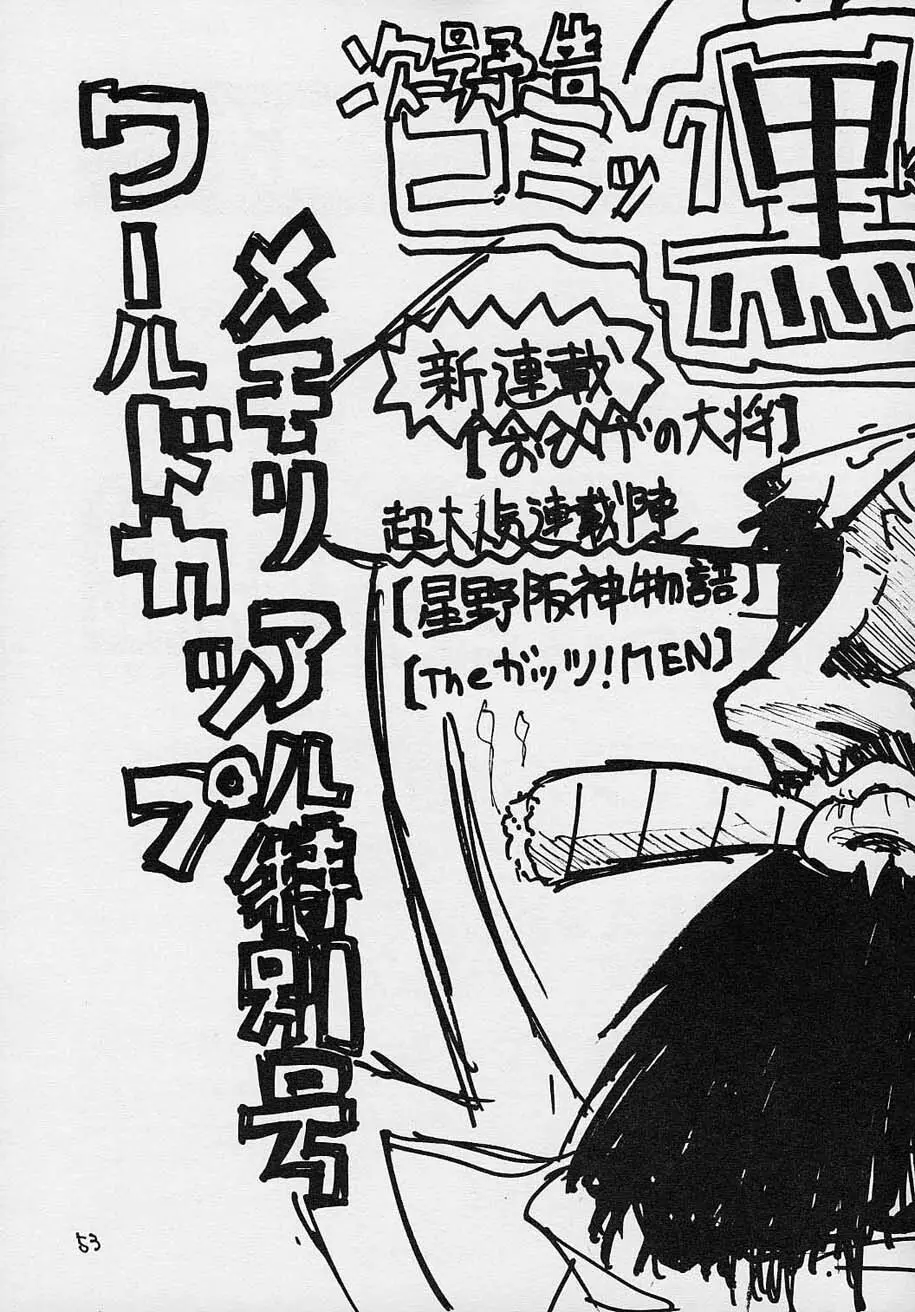 次号予告
コミック黒
新連載
【おひげの大将】
超大人気連載陣
【星野阪神物語】
【Theガッツ!MEN】
メモリアル特別号
ワールドカップ
53